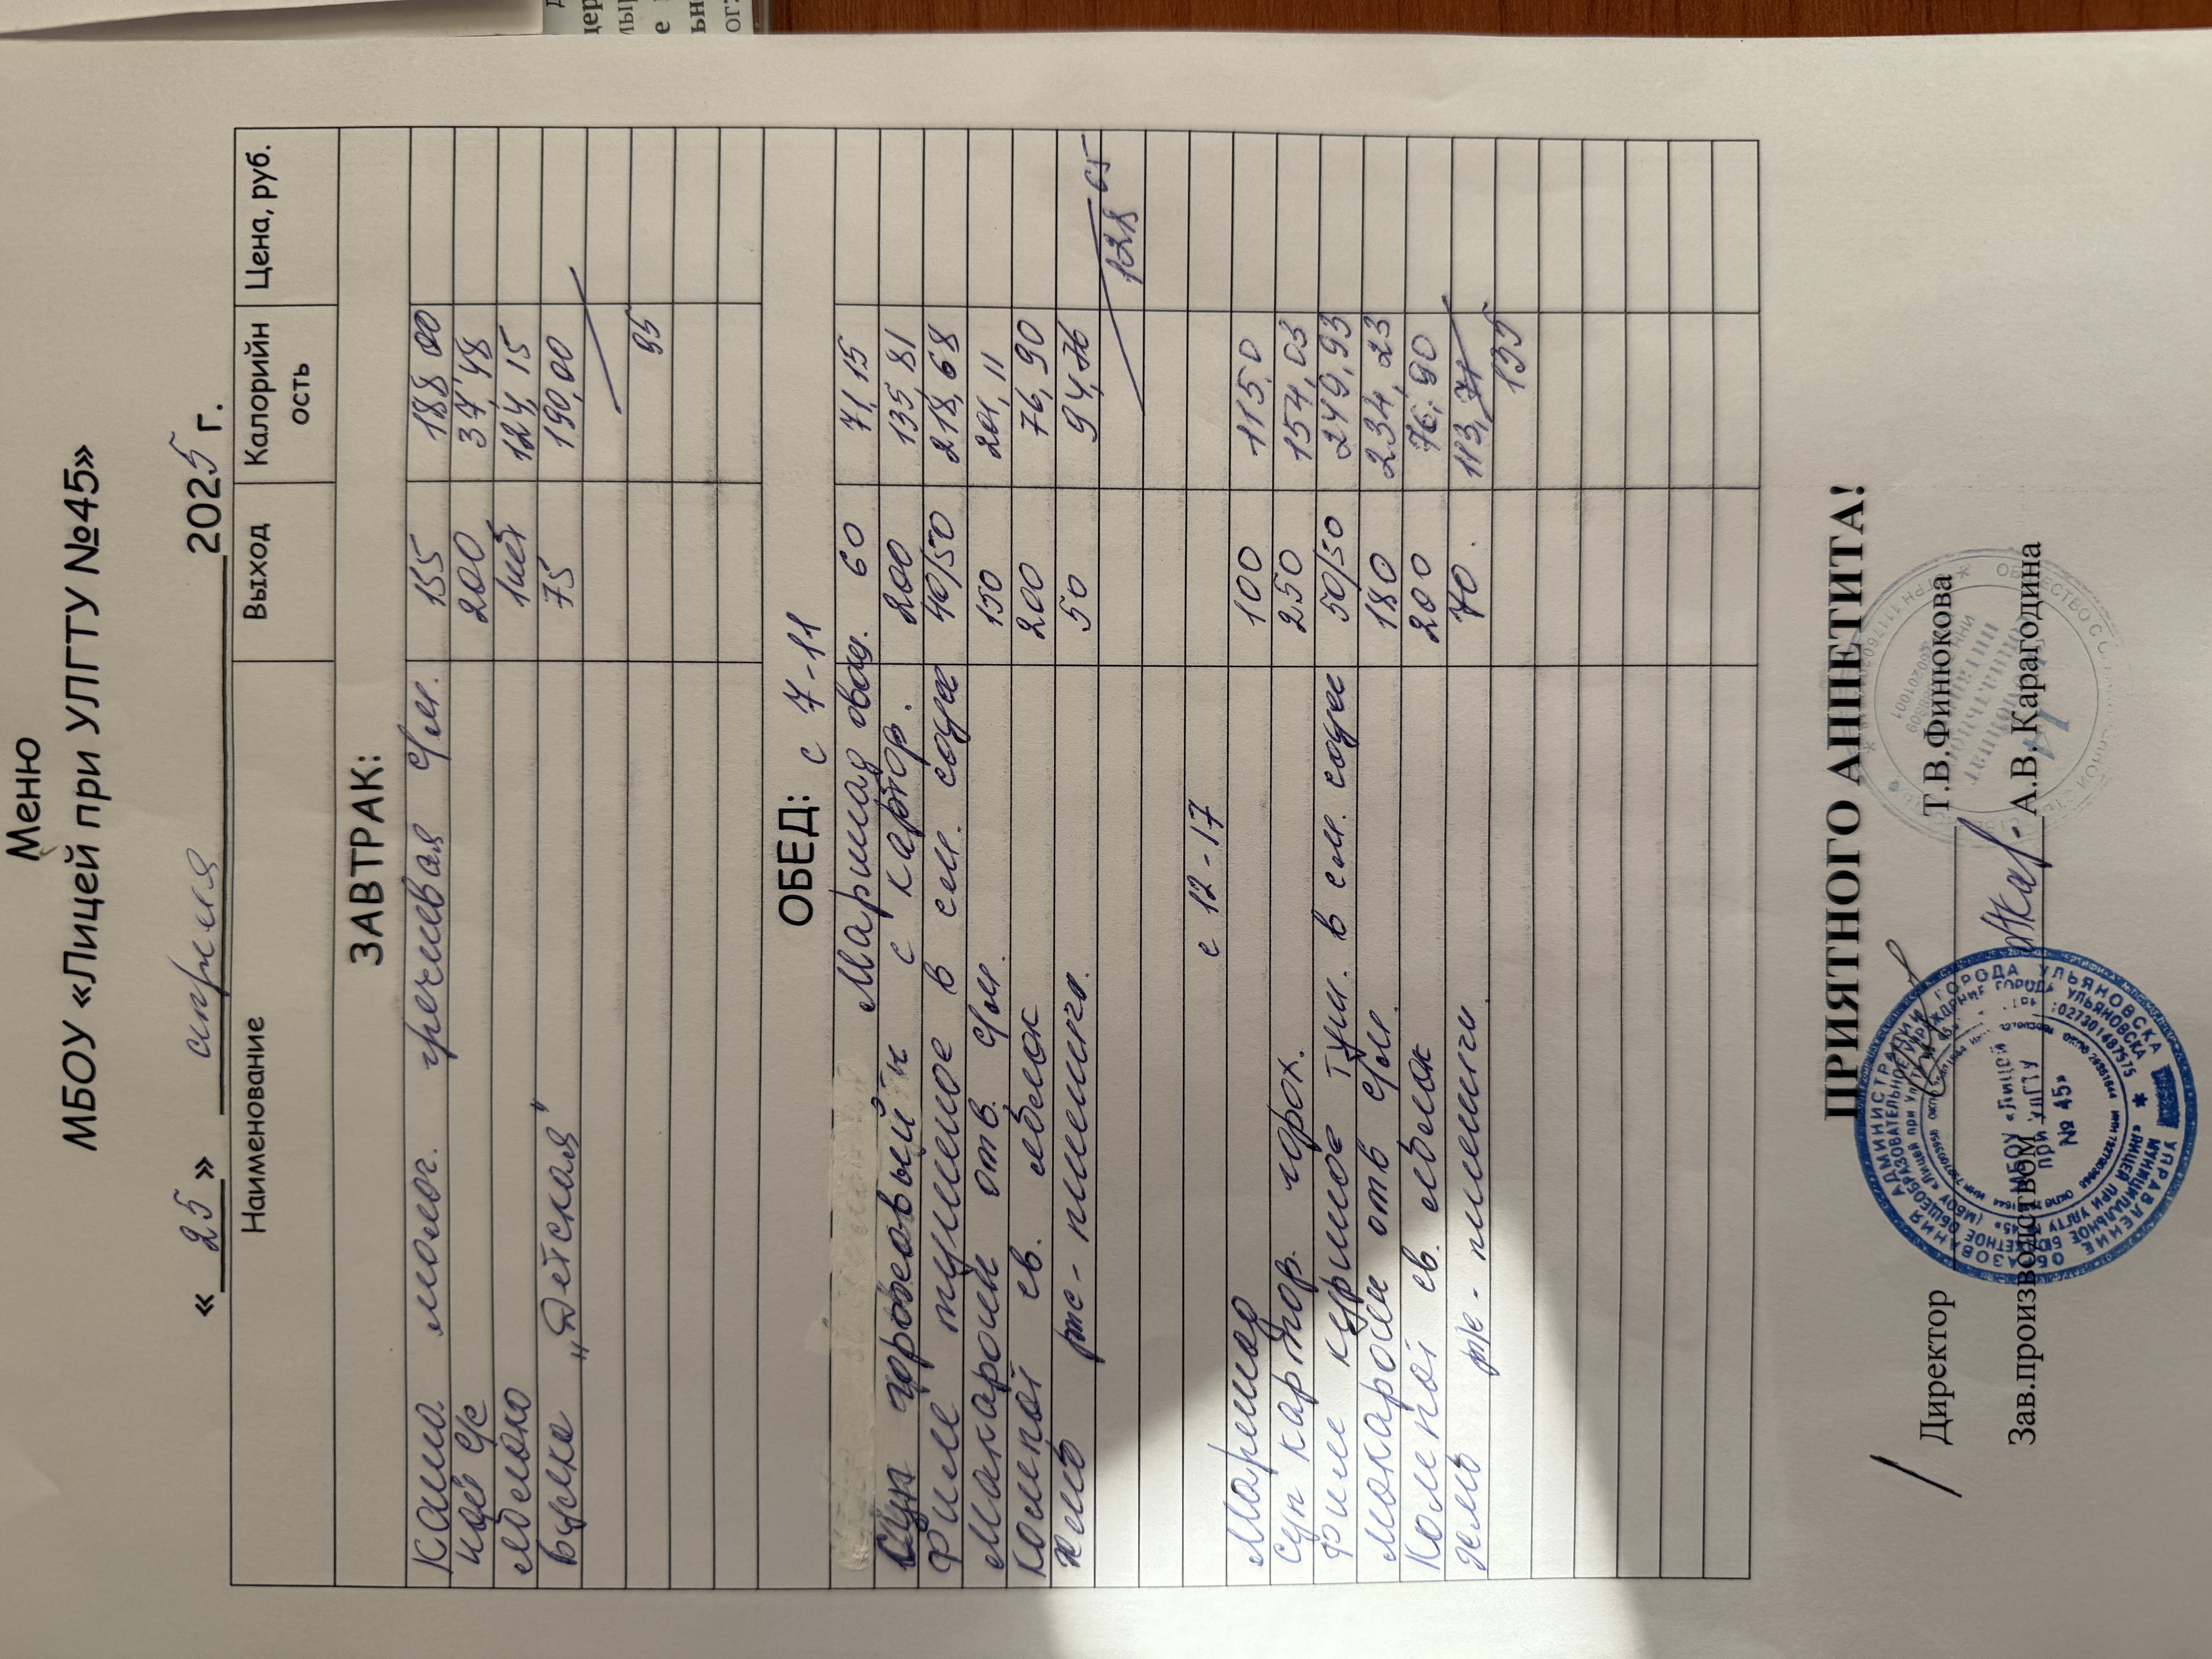 Меню
МБОУ «Лицей при УЛГТУ №45»
« 25 » апреля 2025 г.
Наименование Выход Калорийность Цена, руб.
ЗАВТРАК:
Каша молоч. гречневая с/м. 155 188,00
чай с/с 200 37,48
яблоко 1шт 124,15
булка „Детская" 75 190,00
95
ОБЕД: с 7-11
Маринад овощ. 60 71,15
Суп гороховый с картор. 200 135,81
Филе тушеное в см. соусе 40/50 218,68
Макароны отв. с/м. 150 201,11
Компот св. яблок 200 76,90
хлеб рж-пшенич. 50 94,76
128 65
с 12-17
Маринад 100 115,0
суп картор. горох. 250 154,03
Филе куриное туш. в см. соусе 50/50 249,93
макароны отв с/м. 180 234,23
Компот св. яблок 200 76,90
хлеб рж-пшенич 70. 113,71
135
ПРИЯТНОГО АППЕТИТА!
Директор Т.В.Финюкова
Зав.производством А.В.Карагодина
МБОУ «Лицей
при УлГТУ
№ 45»